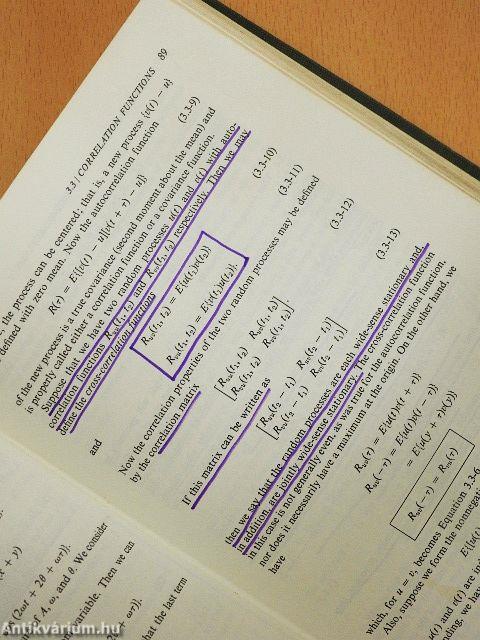 3.3 / CORRELATION FUNCTIONS 89
, the process can be centered; that is, a new process {v(t) − u}
defined with zero mean. Now the autocorrelation function
R(τ) = E{[v(t) − u][v(t + τ) − u]} (3.3-9)
of the new process is a true covariance (second moment about the mean) and
is properly called either a correlation function or a covariance function.
Suppose that we have two random processes u(t) and v(t) with auto-
correlation functions Ruu(t1, t2) and Rvv(t1, t2) respectively. Then we may
define the cross-correlation functions
Ruv(t1, t2) = E{u(t1)v(t2)} (3.3-10)
and
Rvu(t1, t2) = E{v(t1)u(t2)}. (3.3-11)
Now the correlation properties of the two random processes may be defined
by the correlation matrix
[Ruu(t1, t2) Ruv(t1, t2)]
[Rvu(t1, t2) Rvv(t1, t2)]. (3.3-12)
If this matrix can be written as
[Ruu(t2 − t1) Ruv(t2 − t1)]
[Rvu(t2 − t1) Rvv(t2 − t1)] (3.3-13)
then we say that the random processes are each wide-sense stationary and,
in addition, are jointly wide-sense stationary. The cross-correlation function
in this case is not generally even, as was true for the autocorrelation function,
nor does it necessarily have a maximum at the origin. On the other hand, we
have
Ruv(τ) = E{u(t)v(t + τ)}
Ruv(−τ) = E{u(t)v(t − τ)}
= E{u(y + τ)v(y)}
Ruv(−τ) = Rvu(τ)
which, for u = v, becomes Equation 3.3-6
Also, suppose we form the nonnegat
E{[u(t)
(t) and v(t) are
(x + y)
(2ωt + 2θ + ωτ)].
f A, ω, and θ. We consider
variable. Then we can
hat the last term
+ ωτ)].
Antikvárium.hu